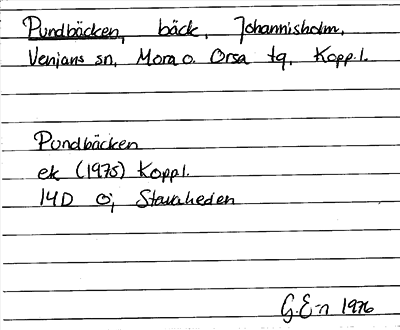 Pundbäcken, bäck, Johannisholm,
Venjans sn, Mora o. Orsa tg, Kopp.l.
Pundbäcken
ek (1975) Koppl.
14D öj Stavaheden
G.E-n 1976